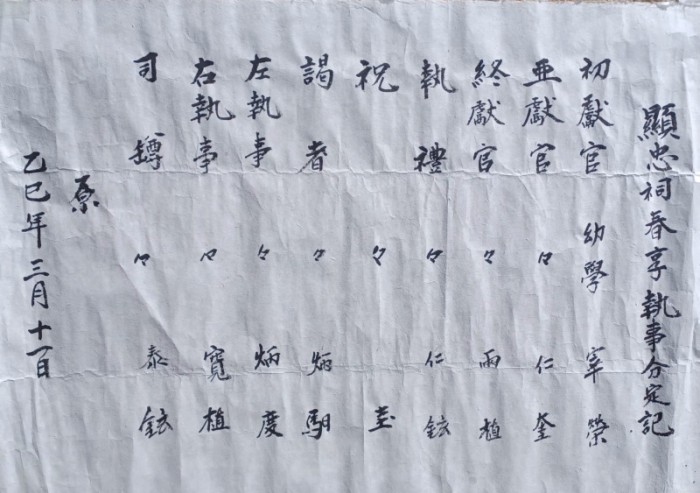 顯忠祠春享執事分定記
初獻官 幼學 宰榮
亜獻官 々 仁奎
終獻官 々 雨植
執禮 々 仁鉉
祝 々
謁者 々 炳馹
左執事 々 炳度
右執事 々 寬植
司罇 々 泰鉉
原
乙巳年三月十一日